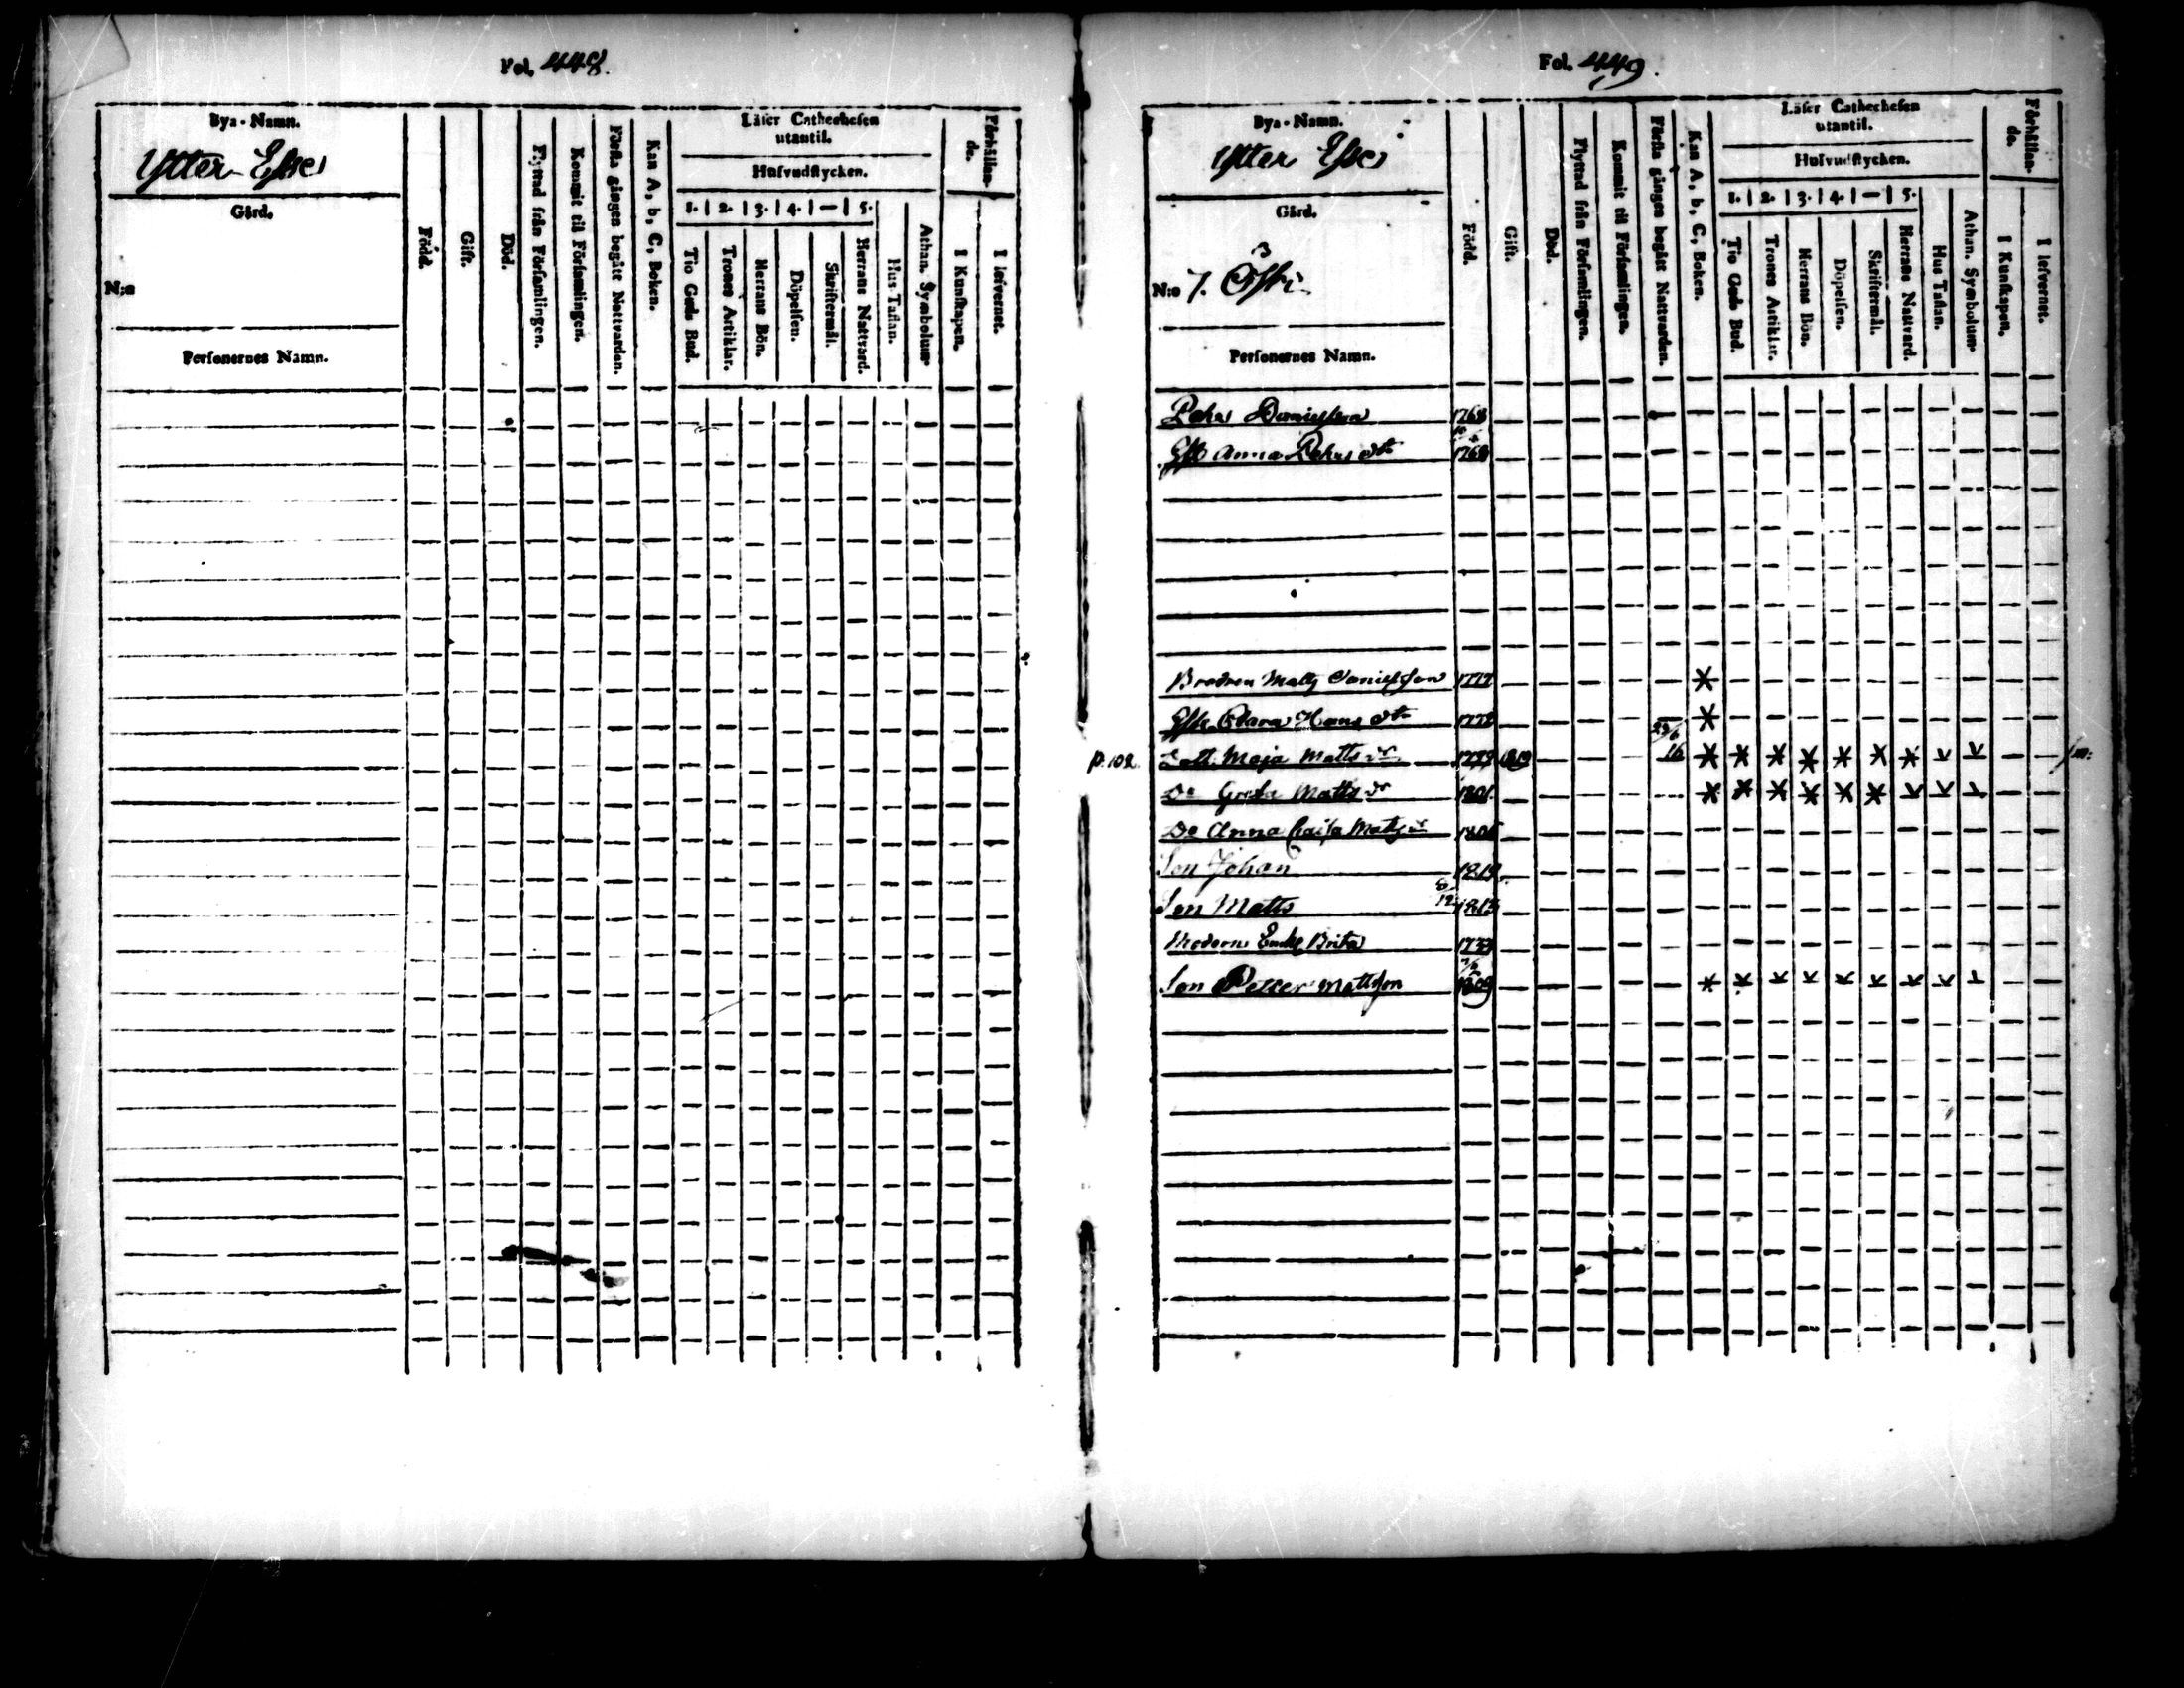 Fol. 448.
Bya-Namn.
Ytter Esse
Gård.
N:o
Personernes Namn.
Född.
Gift.
Död.
Flyttad från Församlingen.
Kommit til Församlingen.
Första gången begått Nattvarden.
Kan A, b, C, Boken.
Läser Cathechesen utantil.
Hufvudstycken.
1. | 2. | 3. | 4. | — | 5.
Tio Guds Bud.
Trones Artiklar.
Herrans Bön.
Döpelsen.
Skriftermål.
Herrans Nattvard.
Hus Taflan.
Athan. Symbolum
Förhållande.
I Kunskapen.
I lefvernet.
Fol. 449.
Bya-Namn.
Ytter Esse
Gård.
N:o 7.
Personernes Namn.
Född.
Gift.
Död.
Flyttad från Församlingen.
Kommit til Församlingen.
Första gången begått Nattvarden.
Kan A, b, C, Boken.
Läser Cathechesen utantil.
Hufvudstycken.
1. | 2. | 3. | 4. | — | 5.
Tio Guds Bud.
Trones Artiklar.
Herrans Bön.
Döpelsen.
Skriftermål.
Herrans Nattvard.
Hus Taflan.
Athan. Symbolum
Förhållande.
I Kunskapen.
I lefvernet.
Pehr Danielsson 1768
Anna Pehrs dtr 1768
Brodren Matts Danielsson 1777
Hans dtr 1772
p. 102 Dott. Maja Matts dr 1819 16
Do Greta Matts dr 1801
Do Anna Caisa Matts dr
Son Johan 1819
Son Matts 1813
Modern Enkl Brita 1733
Son Petter Mattsson 1809